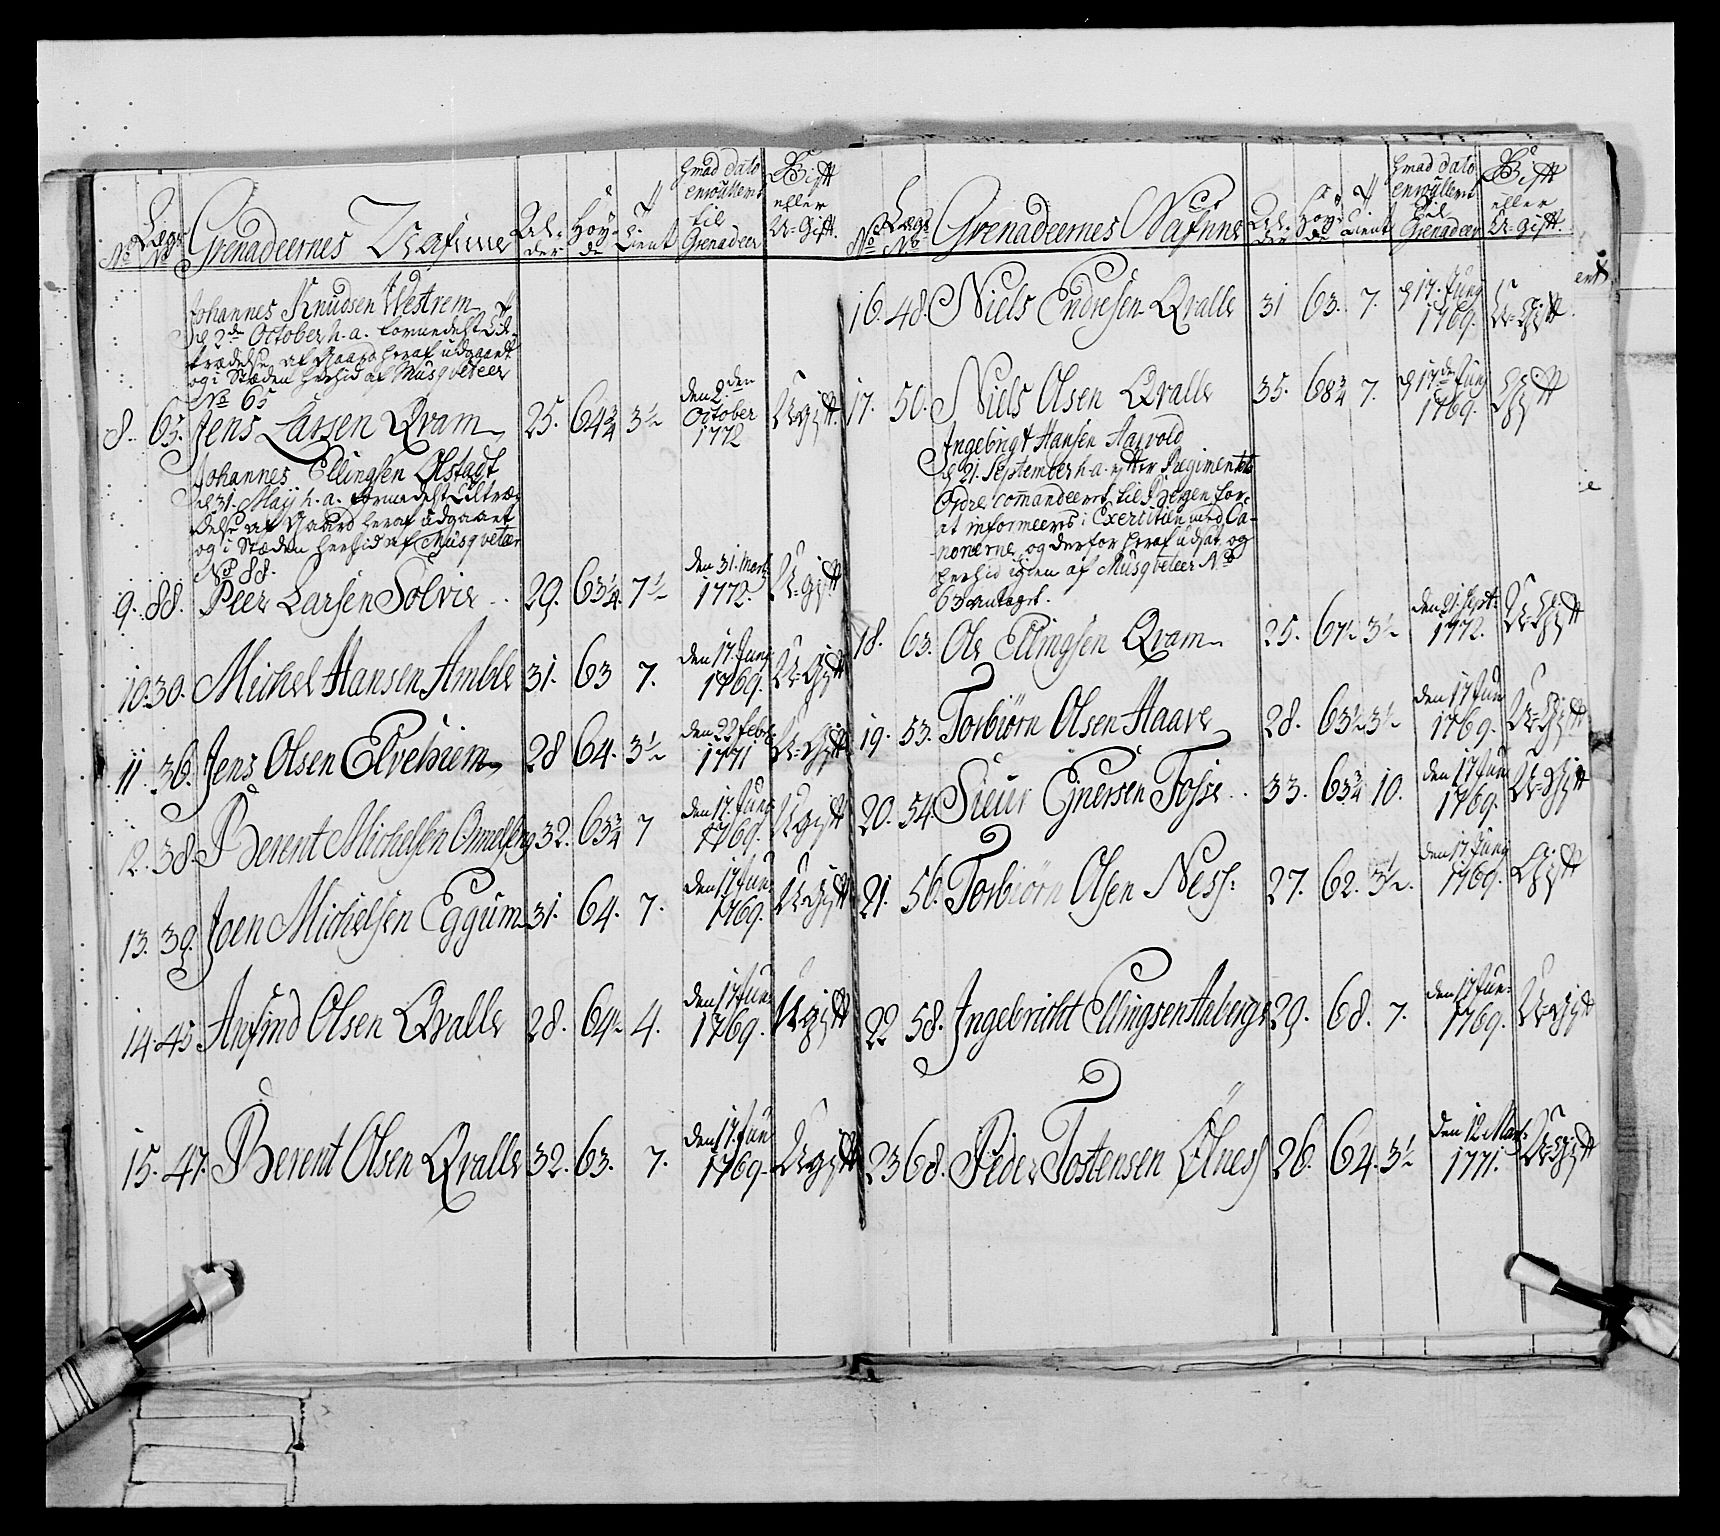 No Lægs No Grenadeernes Nafnne Al-der Høy-de Tient hvad dato enroullerit til Grenadeer Gift eller U-Gift.
Johannes Knudsen Westrem
d 2de October h. a. formedelst Til-
trædelse af Gaard heraf udgaaet
og i Stæden herhid af Musqveteer
No 65
8. 65. Jens Larsen Qvam 25. 64¾ 3½ den 2den October 1772 Ugift.
Johannes Ellingsen Olstagt
d 31. Maij h. a. formedelst Tiltræ-
delse af Gaard heraf udgaaet
og i Stæden herhid af Musqveteer
No 88.
9. 88. Peer Larsen Solvie 29. 63¼ 7½ den 31. Marti 1772. U-gift
10. 30. Michel Hansen Amble 31. 63 7. den 17. Juny 1769. U-Gift
11. 36. Jens Olsen Elvehiem 28 64. 3½ den 22 Febr: 1771 U-Gift
12. 38. Berent Michelsen 32. 63¾ 7 den 17. Juny 1769. Ugift
13. 39. Joen Michelsen Eggum 31. 64. 7. den 17 Jun: 1769. U-Gift
14. 45 Anfind Olsen Qvalle 28. 64½ 4. den 17 Jun: 1769. Ugift
15. 47. Berent Olsen Qvalle 32. 63. 7. den 17. Jun 1769. Ugift
No Lægs No Grenadeernes Nafnne Al-der Høy-de Tient hvad dato enroullerit til Grenadeer Gift eller U-gift.
16. 48. Niels Endresen Qvalle 31 63. 7. d 17. Juny 1769. U-Gift
17. 50. Niels Olsen Qvalle 35. 68¾ 7. d 17de Juny 1769. Gift
Ingebrigt Hansen Aaevold
d 21. September h. a. efter Regimentets
Ordre comandeeret til Bergen for
at informeeres i Exercitien med Ca-
nonerne, og derfor heraf udsat og
herhid igien af Musqveteer No
63 antaget.
18. 63. Ole Ellingsen Qvam 25. 67½ 3½ den 21. Sept: 1772. U-Gift
19. 53. Torbiørn Olsen Haave 28. 63½ 3½ den 17 Jun 1769. U-Gift
20. 54. Siuer Ejnersen Fosse 33. 63¾ 10. den 17 Jun 1769. U-Gift
21. 56. Torbiørn Olsen Ness: 27. 62. 3½. den 17. Juny 1769. Gift
22 58. Ingebricht Ellingsen Aaberge 29. 68. 7. den 17 Jun: 1769. U-Gift
23 68. Peder Tostensen Ølness 26. 64. 3½ den 12 Mart: 1771. U-gift